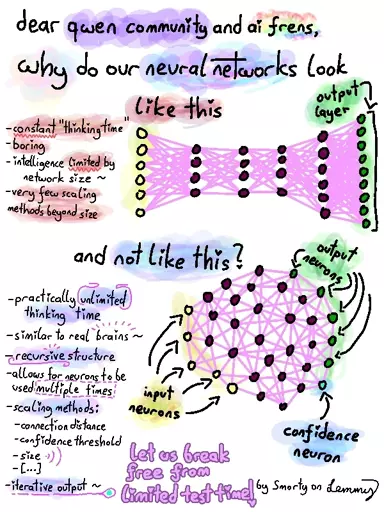 dear qwen community and ai frens,
why do our neural networks look
like this
output
layer
-constant "thinking time"
-boring
-intelligence limited by
network size ~
-very few scaling
methods beyond size
and not like this?
output
neurons
-practically unlimited
thinking time
-similar to real brains ~
-recursive structure
-allows for neurons to be
used multiple times
-scaling methods:
-connection distance
-confidence threshold
-size
-[...]
-iterative output ~
input
neurons
confidence
neuron
let us break
free from
limited test time!
by Smorty on Lemmy